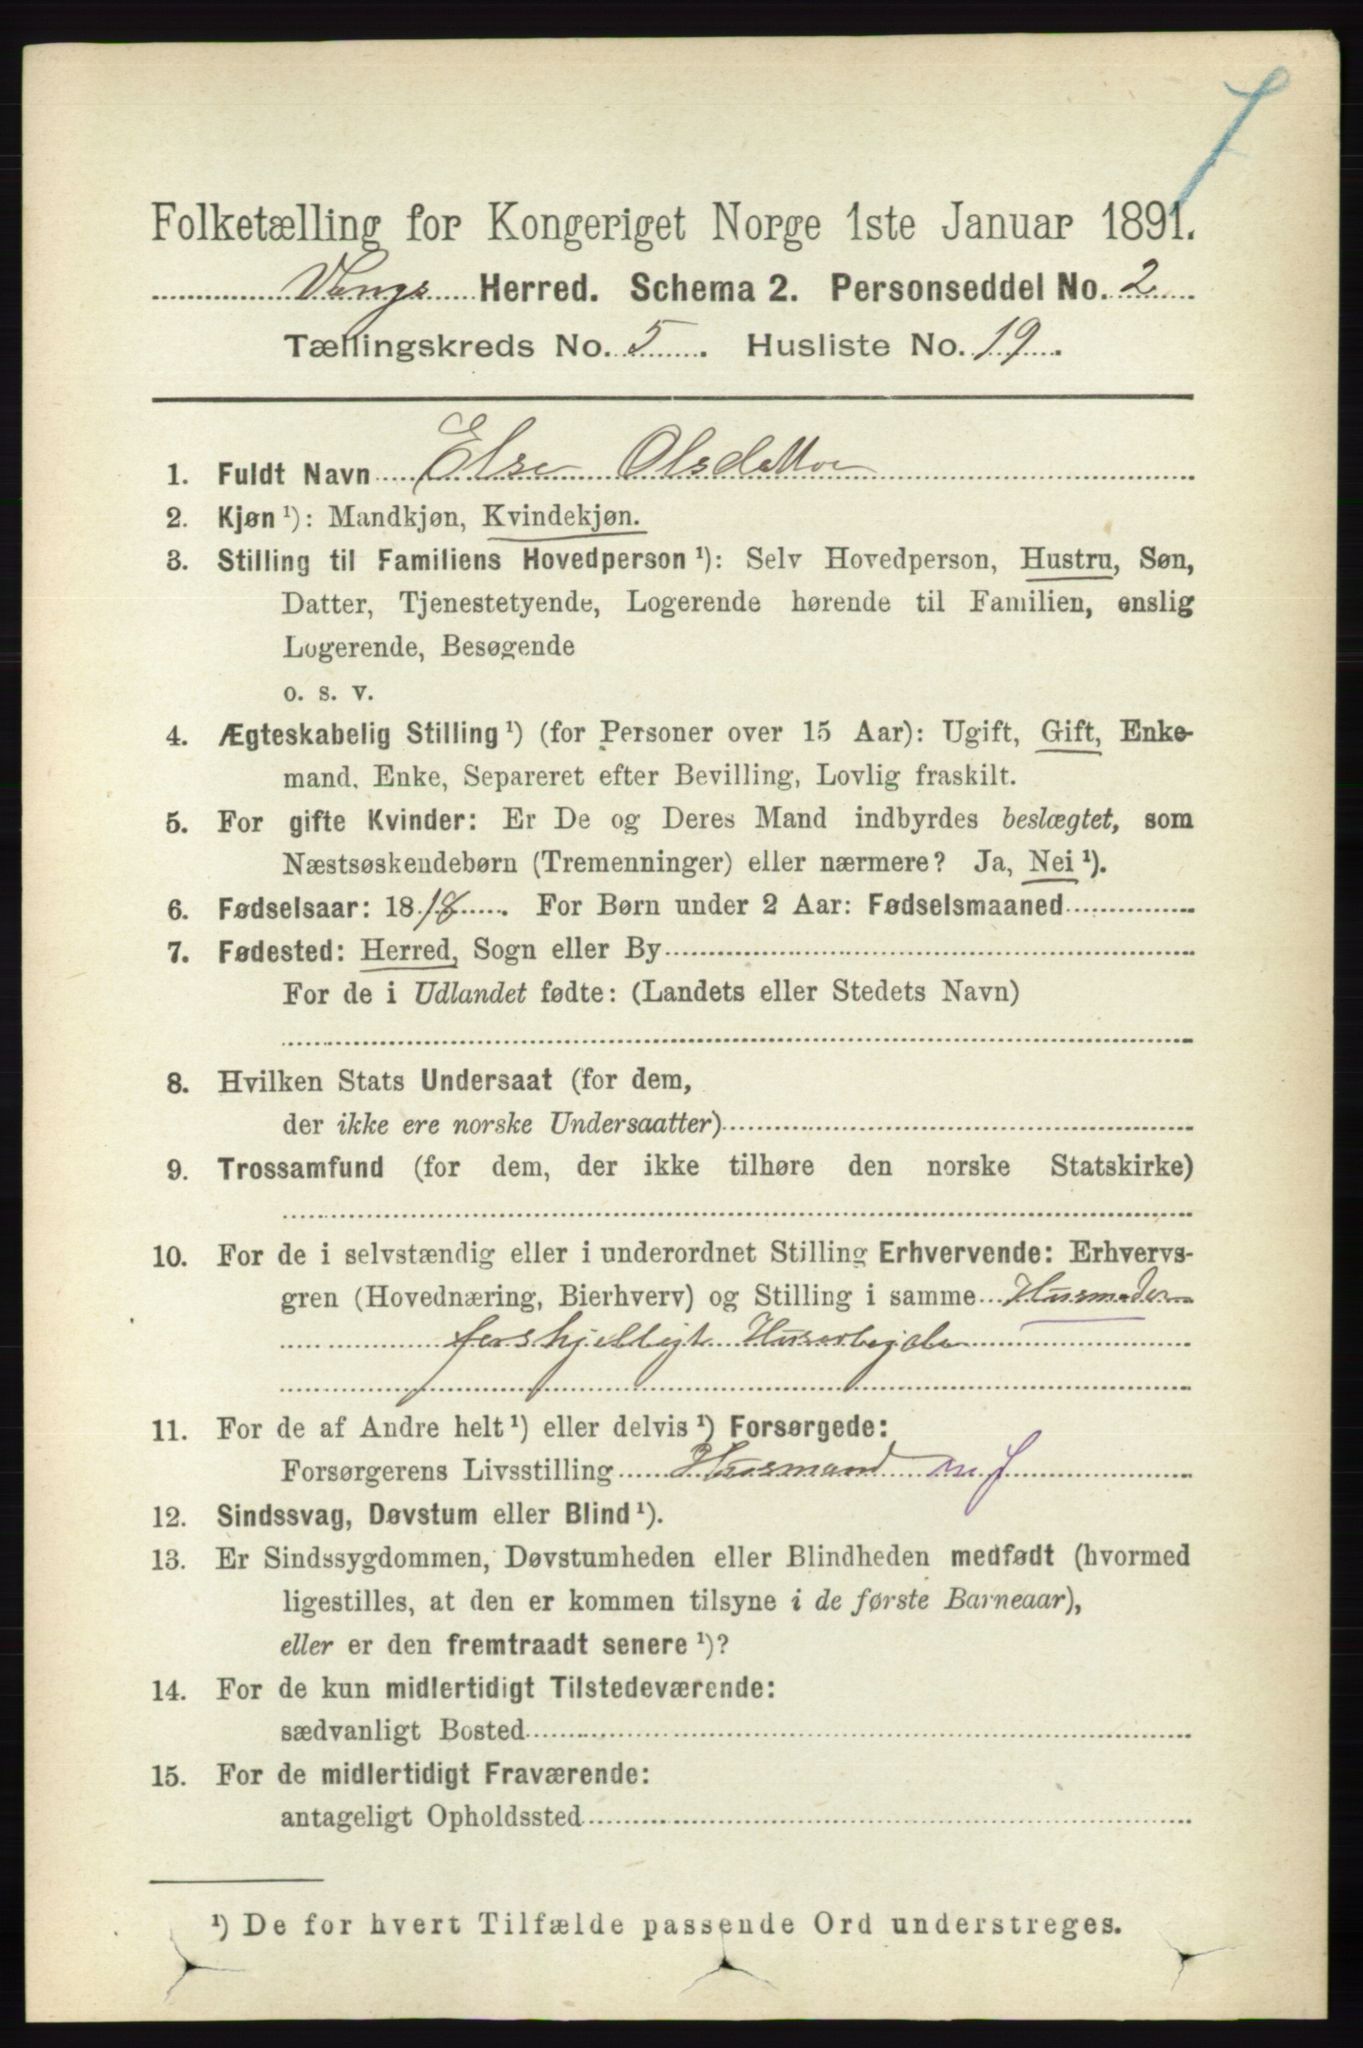 7
Folketælling for Kongeriget Norge 1ste Januar 1891.
Vangs Herred. Schema 2. Personseddel No. 2
Tællingskreds No. 5. Husliste No. 19.
1. Fuldt Navn Else Olsdatter
2. Kjøn ¹): Mandkjøn, Kvindekjøn.
3. Stilling til Familiens Hovedperson ¹): Selv Hovedperson, Hustru, Søn,
Datter, Tjenestetyende, Logerende hørende til Familien, enslig
Logerende, Besøgende
o. s. v.
4. Ægteskabelig Stilling ¹) (for Personer over 15 Aar): Ugift, Gift, Enke-
mand, Enke, Separeret efter Bevilling, Lovlig fraskilt.
5. For gifte Kvinder: Er De og Deres Mand indbyrdes beslægtet, som
Næstsøskendebørn (Tremenninger) eller nærmere? Ja, Nei ¹).
6. Fødselsaar: 1818. For Børn under 2 Aar: Fødselsmaaned
7. Fødested: Herred, Sogn eller By
For de i Udlandet fødte: (Landets eller Stedets Navn)
8. Hvilken Stats Undersaat (for dem,
der ikke ere norske Undersaatter)
9. Trossamfund (for dem, der ikke tilhøre den norske Statskirke)
10. For de i selvstændig eller i underordnet Stilling Erhvervende: Erhvervs-
gren (Hovednæring, Bierhverv) og Stilling i samme Husmoder
forskjelligt Husarbejde
11. For de af Andre helt ¹) eller delvis ¹) Forsørgede:
Forsørgerens Livsstilling Husmand m j
12. Sindssvag, Døvstum eller Blind ¹).
13. Er Sindssygdommen, Døvstumheden eller Blindheden medfødt (hvormed
ligestilles, at den er kommen tilsyne i de første Barneaar),
eller er den fremtraadt senere ¹)?
14. For de kun midlertidigt Tilstedeværende:
sædvanligt Bosted
15. For de midlertidigt Fraværende:
antageligt Opholdssted
¹) De for hvert Tilfælde passende Ord understreges.